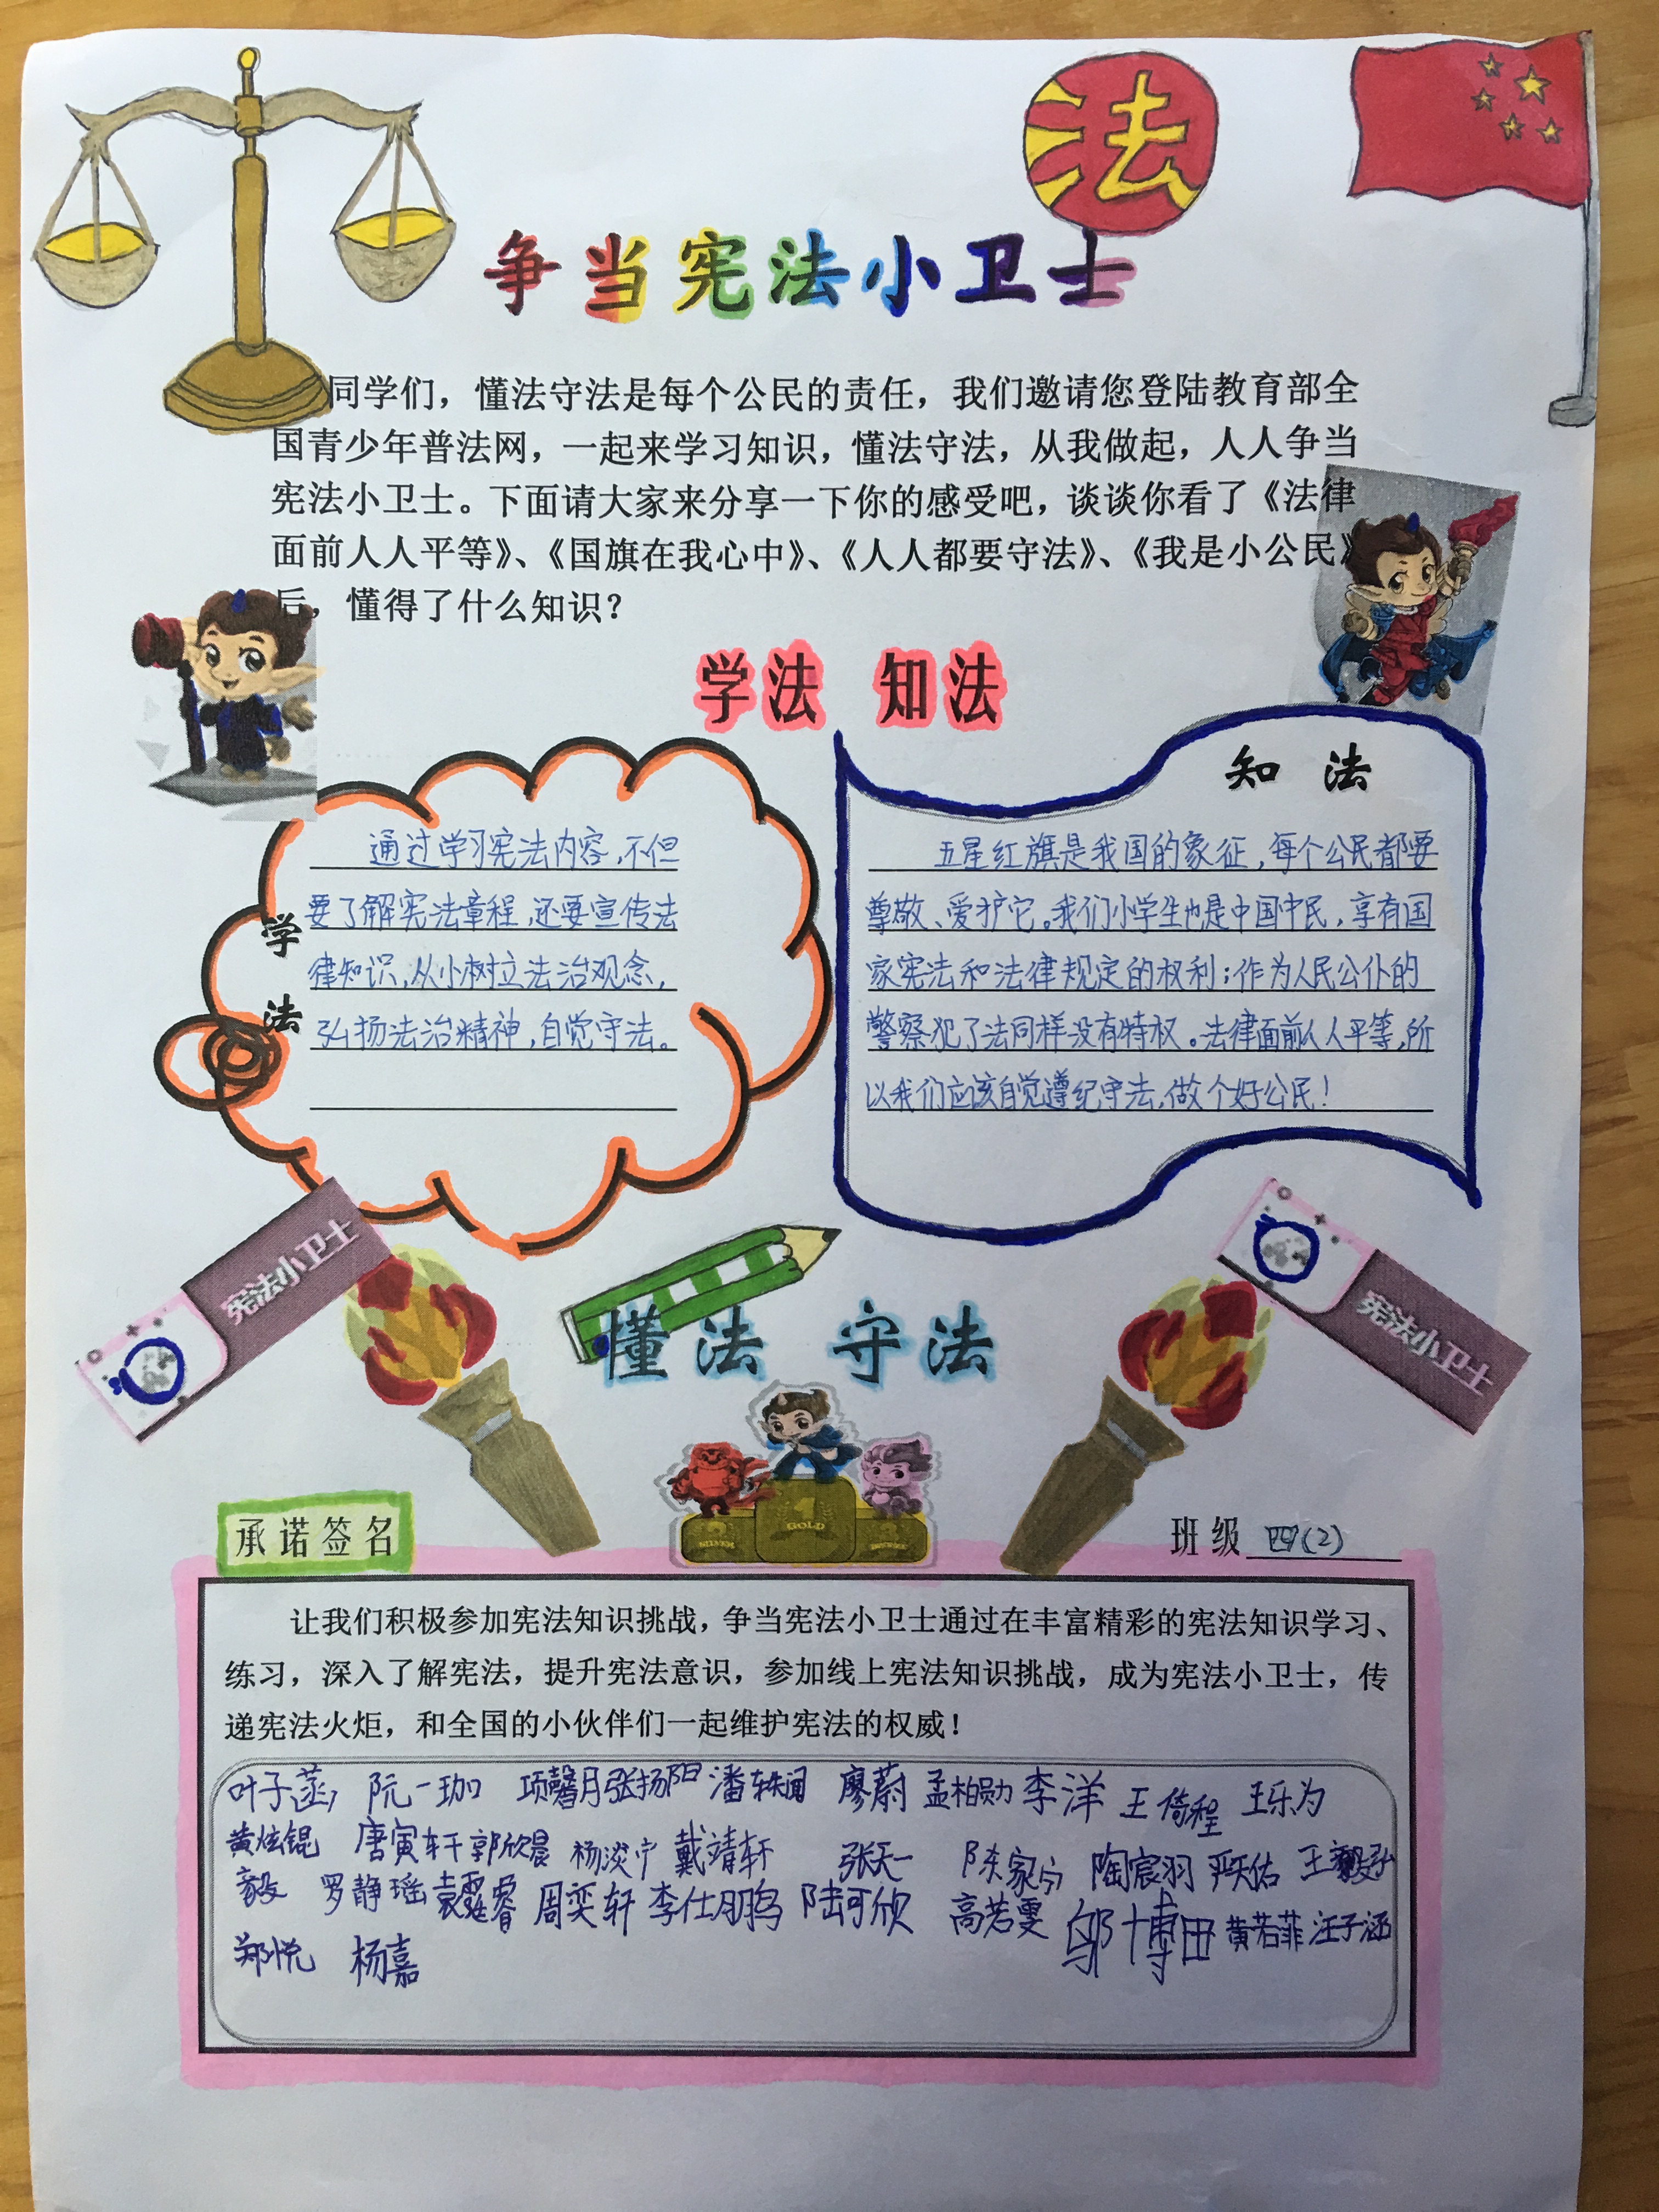 法
争当宪法小卫士
同学们，懂法守法是每个公民的责任，我们邀请您登陆教育部全
国青少年普法网，一起来学习知识，懂法守法，从我做起，人人争当
宪法小卫士。下面请大家来分享一下你的感受吧，谈谈你看了《法律
面前人人平等》、《国旗在我心中》、《人人都要守法》、《我是小公民》
后，懂得了什么知识？
学法 知法
学法
通过学习宪法内容，不但
要了解宪法章程，还要宣传法
律知识，从小树立法治观念，
弘扬法治精神，自觉守法。
知 法
五星红旗是我国的象征，每个公民都要
尊敬、爱护它。我们小学生也是中国中民，享有国
家宪法和法律规定的权利；作为人民公仆的
警察犯了法同样没有特权。法律面前人人平等，所
以我们应该自觉遵纪守法，做个好公民！
宪法小卫士
宪法小卫士
懂法 守法
1
GOLD
SILVER
承诺签名
班级 四(2)
让我们积极参加宪法知识挑战，争当宪法小卫士通过在丰富精彩的宪法知识学习、
练习，深入了解宪法，提升宪法意识，参加线上宪法知识挑战，成为宪法小卫士，传
递宪法火炬，和全国的小伙伴们一起维护宪法的权威！
叶子菡 阮一珈 项馨月 张扬阳 廖蔚 孟柏勋 李洋 王倚程 王乐为
黄炫锟 唐寅轩 郭欣晨 杨淡宁 戴靖轩 张天一 陈家宁 陶宸羽 严天佑
毅 罗静瑶 周奕轩 李仕鹏 陆可欣 高若雯 邬博田 黄若菲 汪子涵
郑悦 杨嘉